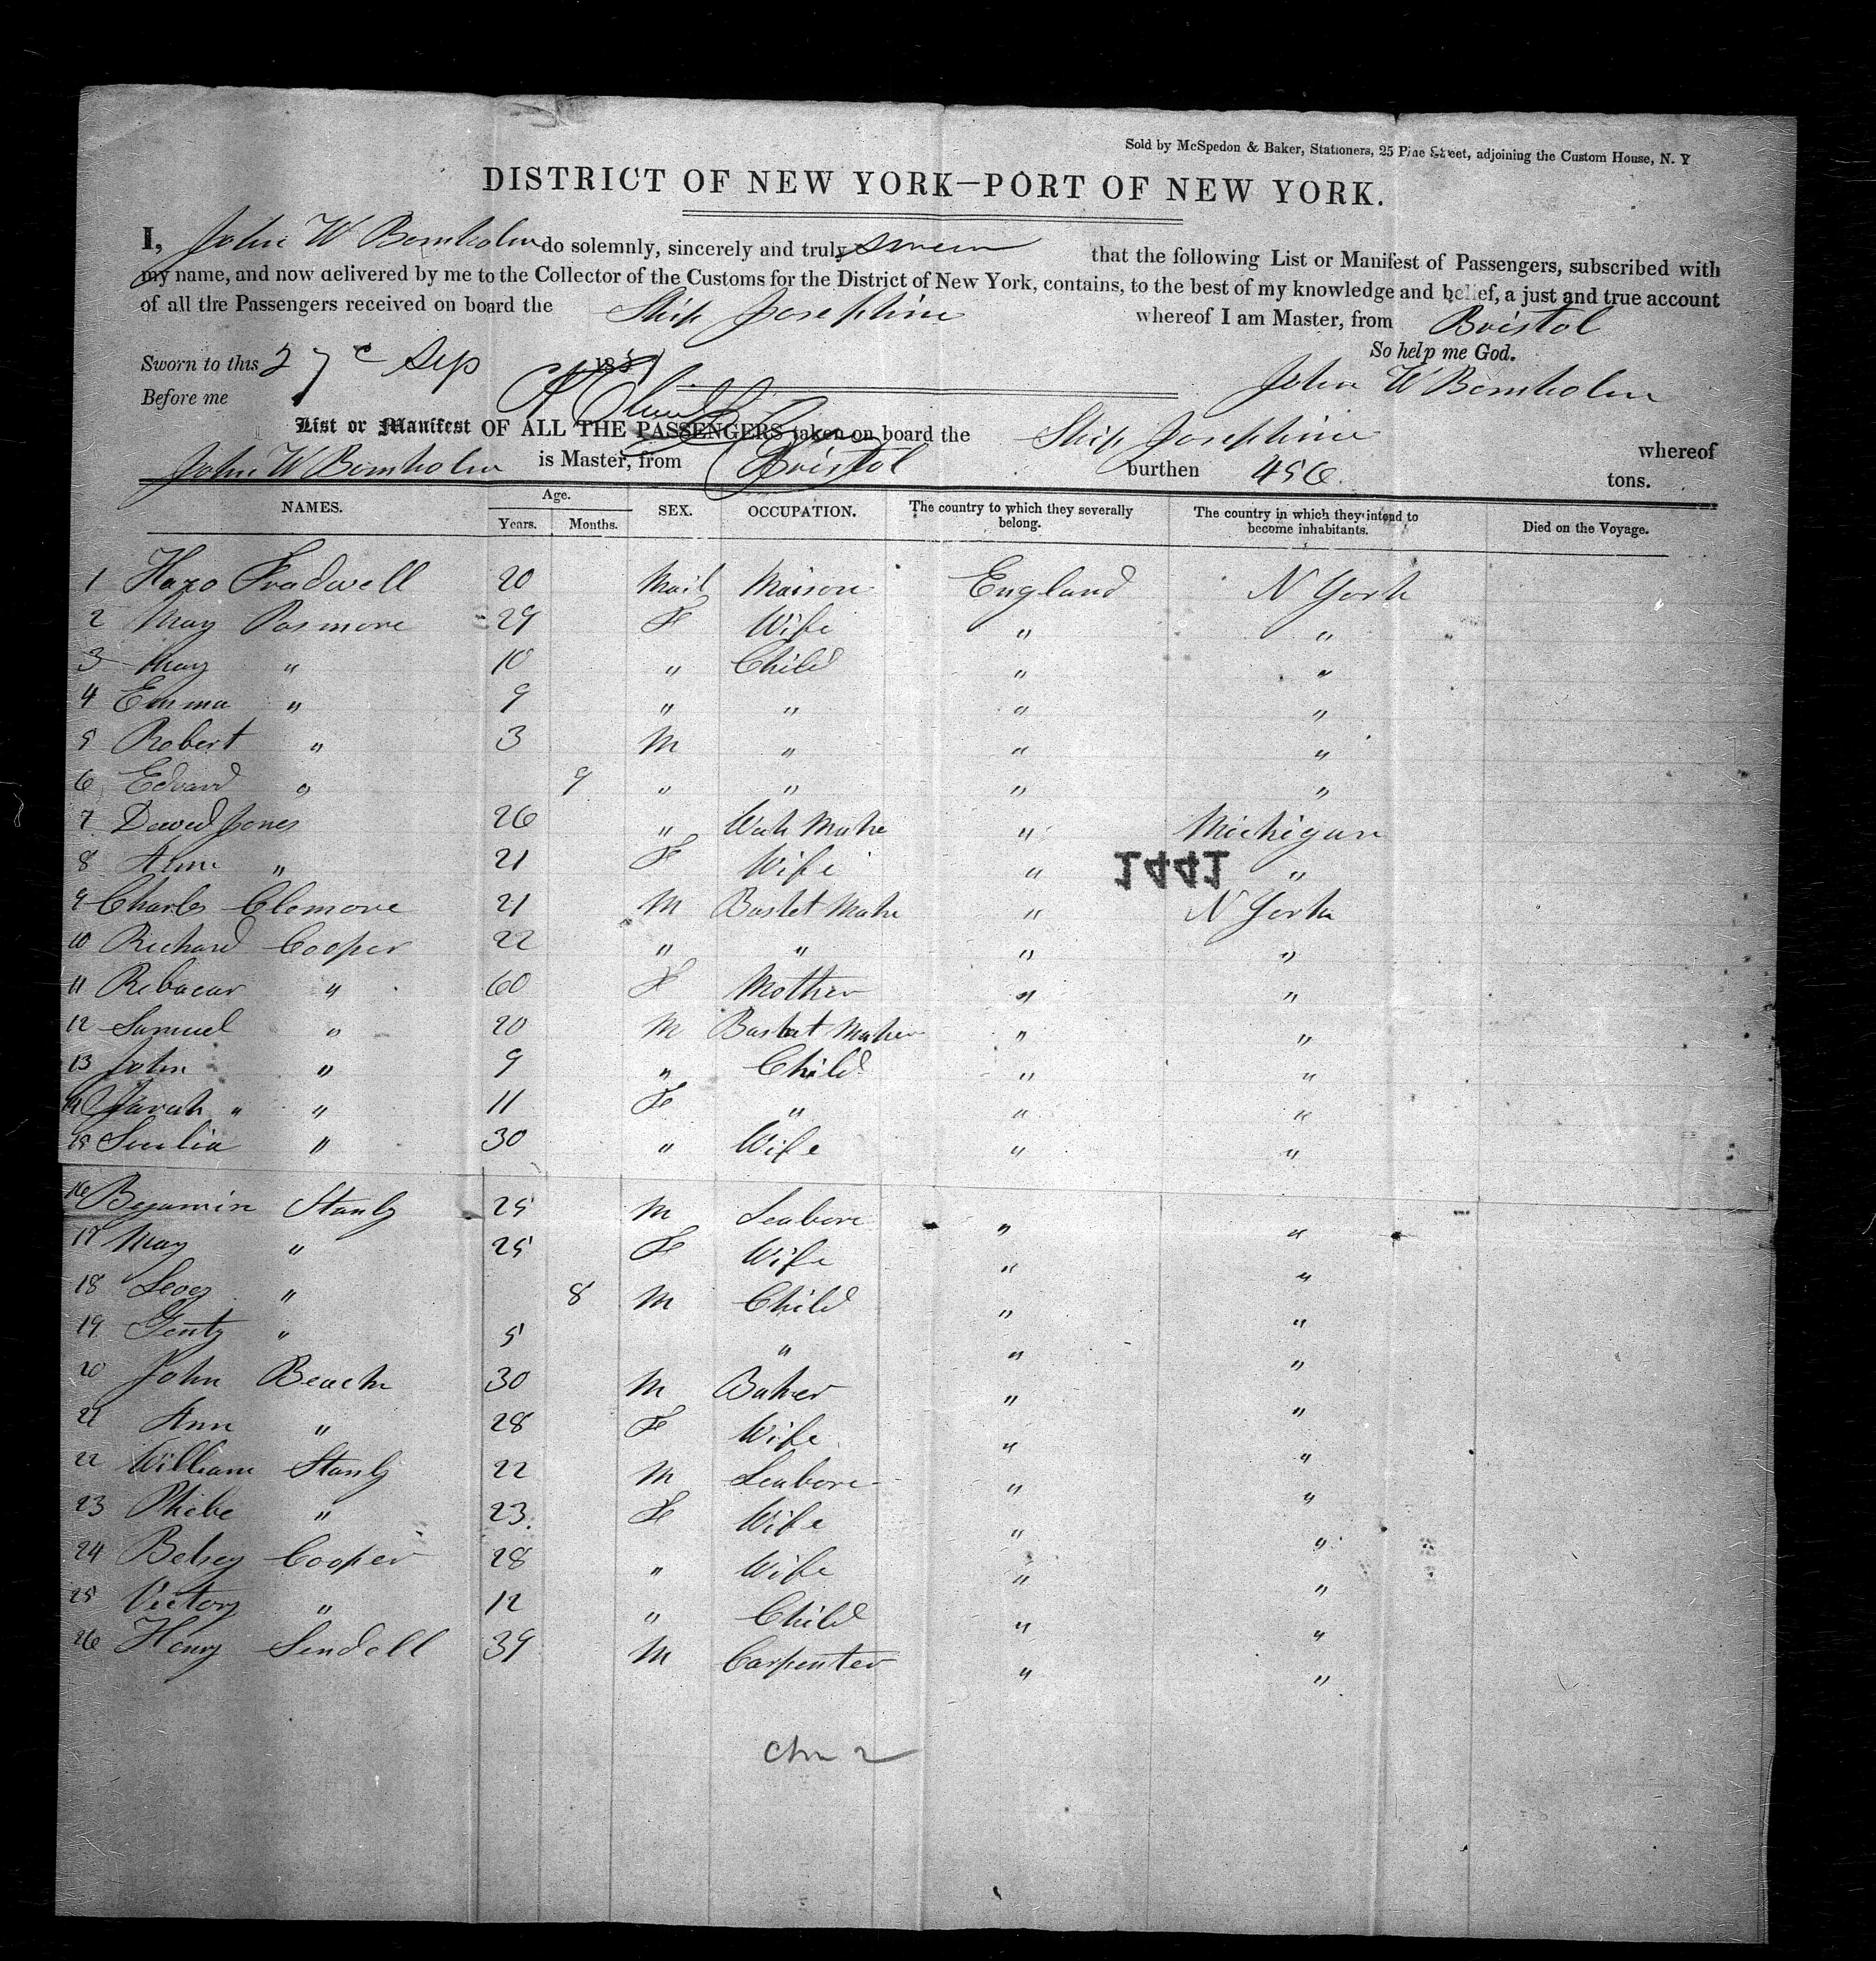 Sold by McSpedon & Baker, Stationers, 25 Pine Street, adjoining the Custom House, N. Y
DISTRICT OF NEW YORK—PORT OF NEW YORK.
I, John W Bornholm do solemnly, sincerely and truly swear that the following List or Manifest of Passengers, subscribed with
my name, and now delivered by me to the Collector of the Customs for the District of New York, contains, to the best of my knowledge and belief, a just and true account
of all the Passengers received on board the Ship Josephine whereof I am Master, from Bristol
So help me God.
Sworn to this 27 Sep 185
John W Bornholm
Before me
List or Manifest OF ALL THE PASSENGERS taken on board the Ship Josephine whereof
John W Bornholm is Master, from Bristol burthen 456 tons.
NAMES. Age. Years. Months. SEX. OCCUPATION. The country to which they severally belong. The country in which they intend to become inhabitants. Died on the Voyage.
1 Fradwell 20 Mail Maison England N York
2 May Pasmore 29 F Wife " "
3 May " 10 " Child " "
4 Emma " 9 " " " "
5 Robert " 3 M " " "
6 Edward " 9 " " " "
7 Dawed Jones 26 " " Michigan
8 Ann " 21 F Wife " "
1441
9 Charles Clemore 21 M Basket Make " N York
10 Richard Cooper 22 " " " "
11 Rebacar " 60 F Mother " "
12 Samuel " 20 M Basket Maker " "
13 John " 9 " Child " "
14 Sarah " " 11 F " " "
15 " 30 " Wife " "
16 Beyamin Stanly 25 M Leabore " "
17 May " 25 F Wife " "
18 " 8 M Child " "
19 Genty " 5 " " "
20 John Beache 30 M Baker " "
21 Ann " 28 F Wife " "
22 William Stanly 22 M Leabore " "
23 Phebe " 23 F Wife " "
24 Betsey Cooper 28 " Wife " "
25 Victory " 12 " Child " "
26 Henry Sendell 39 M Carpenter " "